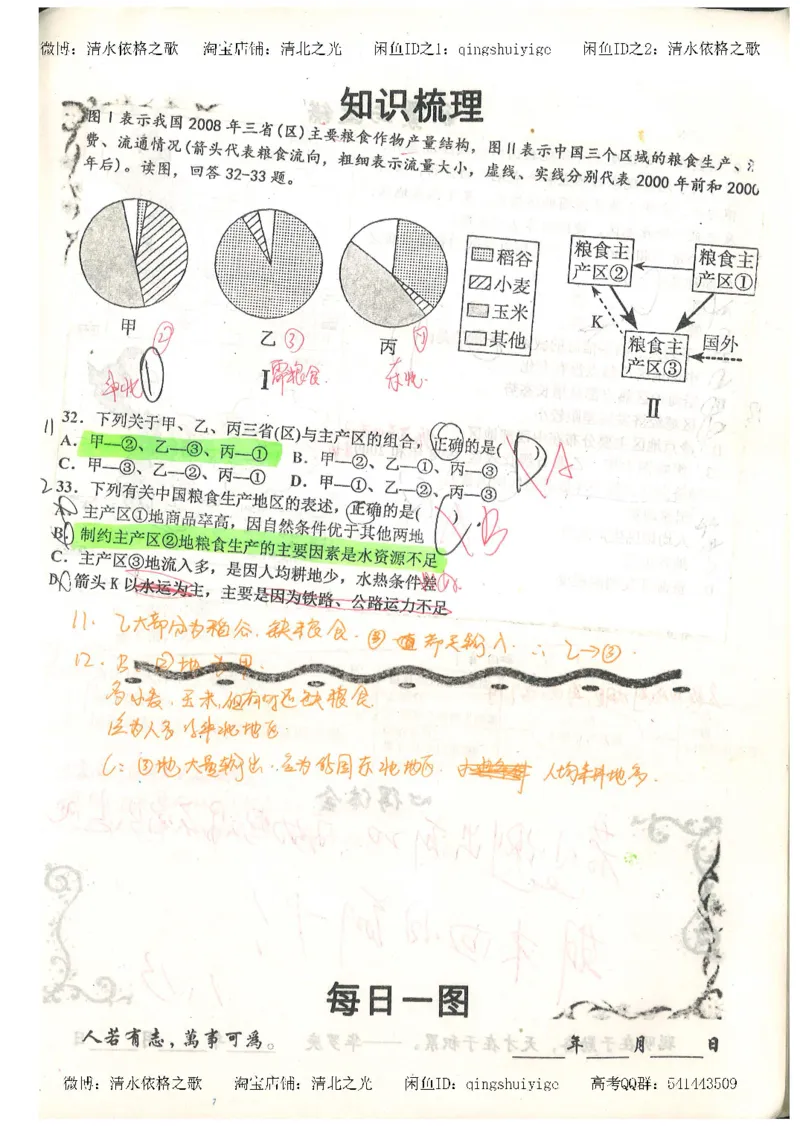 微博：清水依格之歌 淘宝店铺：清北之光 闲鱼ID之1：qingshuiyige 闲鱼ID之2：清水依格之歌
知识梳理
图Ⅰ表示我国2008年三省(区)主要粮食作物产量结构，图Ⅱ表示中国三个区域的粮食生产、
费、流通情况(箭头代表粮食流向，粗细表示流量大小，虚线、实线分别代表2000年前和2000
年后)。读图，回答32-33题。
稻谷
小麦
玉米
其他
粮食主产区②
粮食主产区①
K
粮食主产区③
国外
甲 ②
乙 ③
丙
华北
Ⅰ
东北
Ⅱ
11 32．下列关于甲、乙、丙三省(区)与主产区的组合，正确的是( ) A
A．甲—②、乙—③、丙—① B．甲—②、乙—①、丙—③
C．甲—③、乙—②、丙—① D．甲—①、乙—②、丙—③
33．下列有关中国粮食生产地区的表述，正确的是( ) B
A．主产区①地商品率高，因自然条件优于其他两地
B．制约主产区②地粮食生产的主要因素是水资源不足
C．主产区③地流入多，是因人均耕地少，水热条件差
D．箭头K以水运为主，主要是因为铁路、公路运力不足
11．乙大部分为稻谷．缺粮食．③ 输入．∴ 乙→③．
12．B ②地为甲．
多小麦．玉米， 缺粮食
应为 华北地区
C：③地大量输出．应为 东北地区． 人均耕地多．
心得体会
每日一图
人若有志，萬事可為。 年 月 日
微博：清水依格之歌 淘宝店铺：清北之光 闲鱼ID：qingshuiyige 高考QQ群：541443509